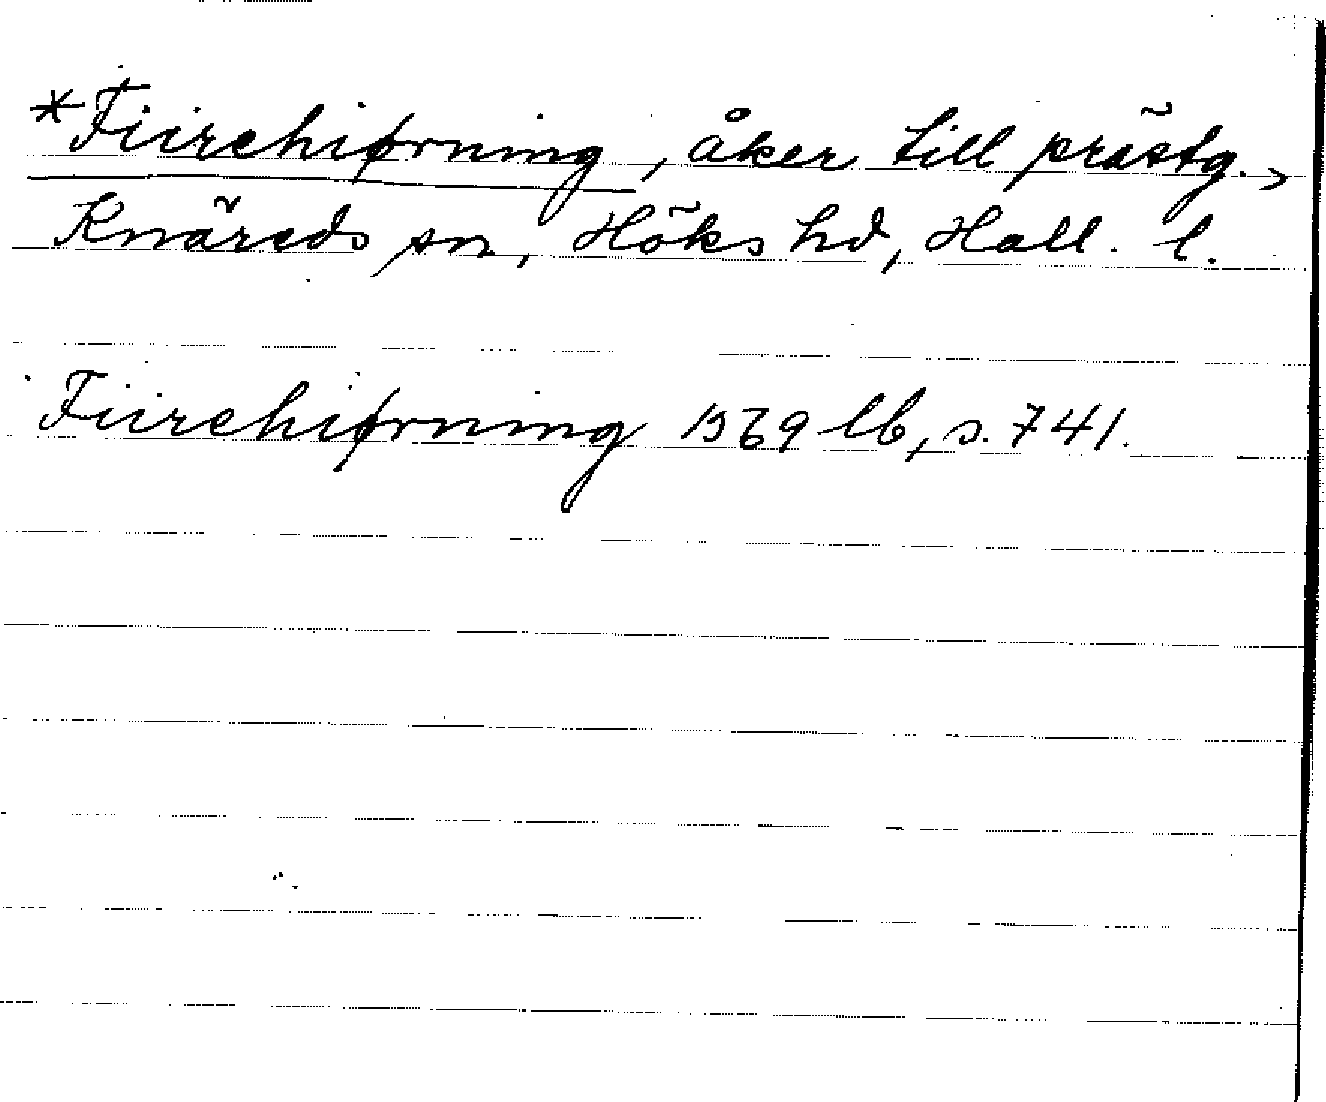 *Fiirehiørning, åker till prästg.,
Knäreds sn, Höks hd, Hall. l.
Fiirehiørning 1569 lb, s. 741.